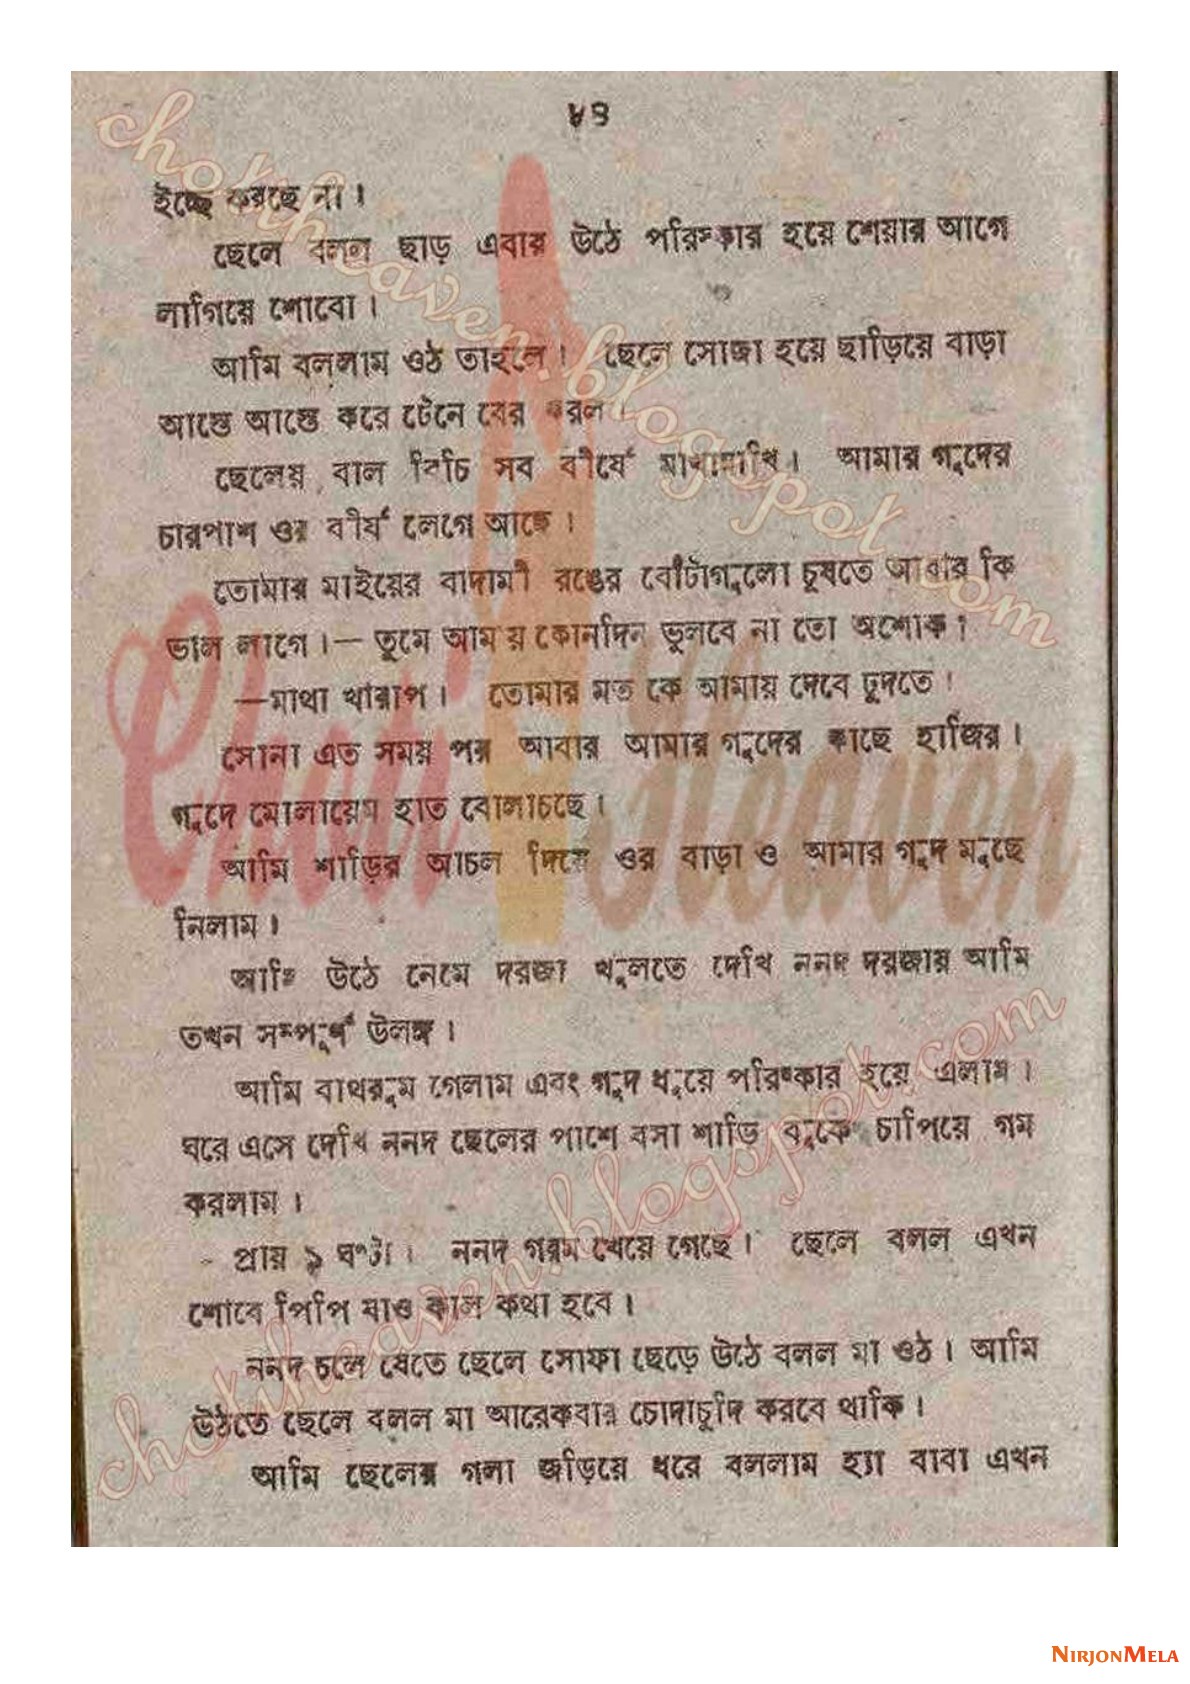 ৮৪
ইচ্ছে করছে না।
ছেলে বলল ছাড় এবার উঠে পরিষ্কার হয়ে শেয়ার আগে
লাগিয়ে শোবো।
আমি বললাম ওঠ তাহলে। ছেলে সোজা হয়ে ছাড়িয়ে বাড়া
আস্তে আস্তে করে টেনে বের করল।
ছেলেয় বাল বিচি সব বীর্যে মাখামাখি। আমার গুদের
চারপাশ ওর বীর্য লেগে আছে।
তোমার মাইয়ের বাদামী রঙের বোঁটাগুলো চুষতে আবার কি
ভাল লাগে।— তুমে আমায় কোনদিন ভুলবে না তো অশোক।
—মাথা খারাপ। তোমার মত কে আমায় দেবে চুদতে।
সোনা এত সময় পর আবার আমার গুদের কাছে হাজির।
গুদে মোলায়েম হাত বোলাচছে।
আমি শাড়ির আচল দিয়ে ওর বাড়া ও আমার গুদ মুছে
নিলাম।
আমি উঠে নেমে দরজা খুলতে দেখি ননদ দরজায় আমি
তখন সম্পূর্ণ উলঙ্গ।
আমি বাথরুম গেলাম এবং গুদ ধুয়ে পরিষ্কার হয়ে এলাম।
ঘরে এসে দেখি ননদ ছেলের পাশে বসা শাড়ি বুকে চাপিয়ে গম
করলাম।
প্রায় ১ ঘণ্টা। ননদ গরম খেয়ে গেছে। ছেলে বলল এখন
শোবে পিপি যাও কাল কথা হবে।
ননদ চলে যেতে ছেলে সোফা ছেড়ে উঠে বলল মা ওঠ। আমি
উঠতে ছেলে বলল মা আরেকবার চোদাচুদি করবে থাকি।
আমি ছেলের গলা জড়িয়ে ধরে বললাম হ্যা বাবা এখন
chotiheaven.blogspot.com
Choti Heaven
chotiheaven.blogspot.com
NIRJONMELA